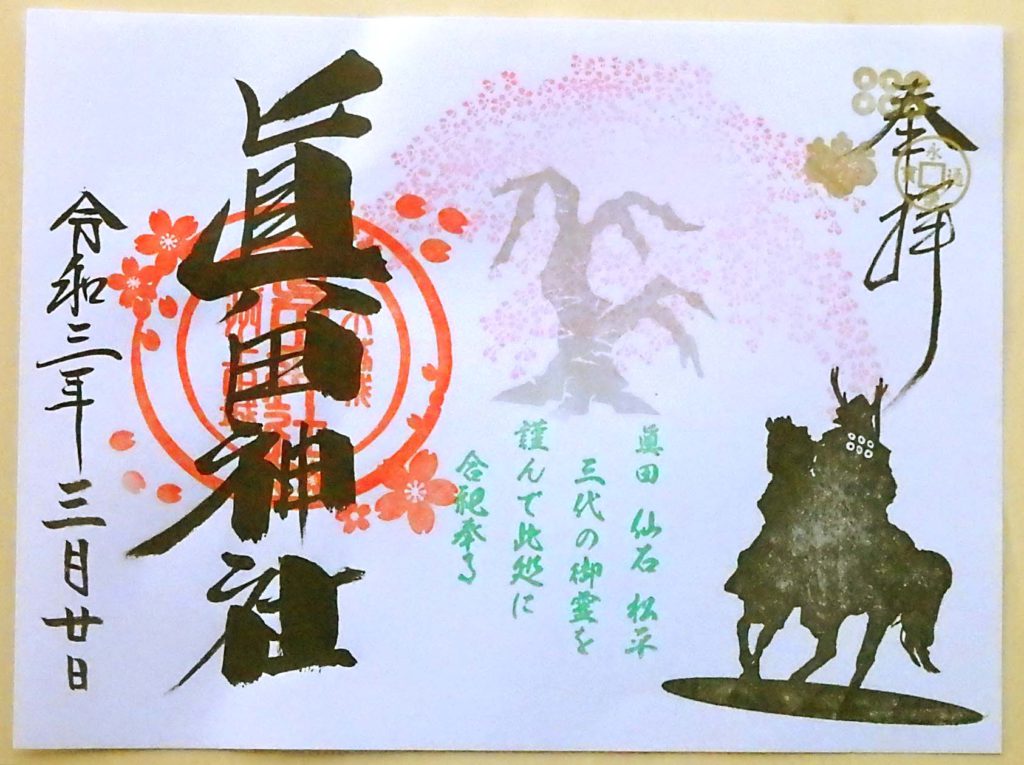 奉拝
永
通
寳
眞田 仙石 松平
三代の御霊を
謹んで此処に
合祀奉る
眞田神社
令和三年三月廿日